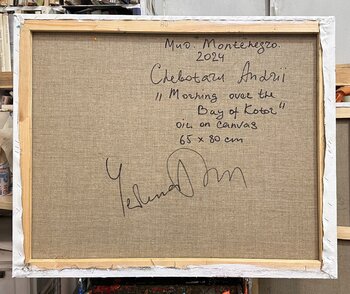 Muo. Montenegro.
2024
Chebotaru Andrii
„Morning over the
Bay of Kotor"
oil on canvas
65 x 80 cm